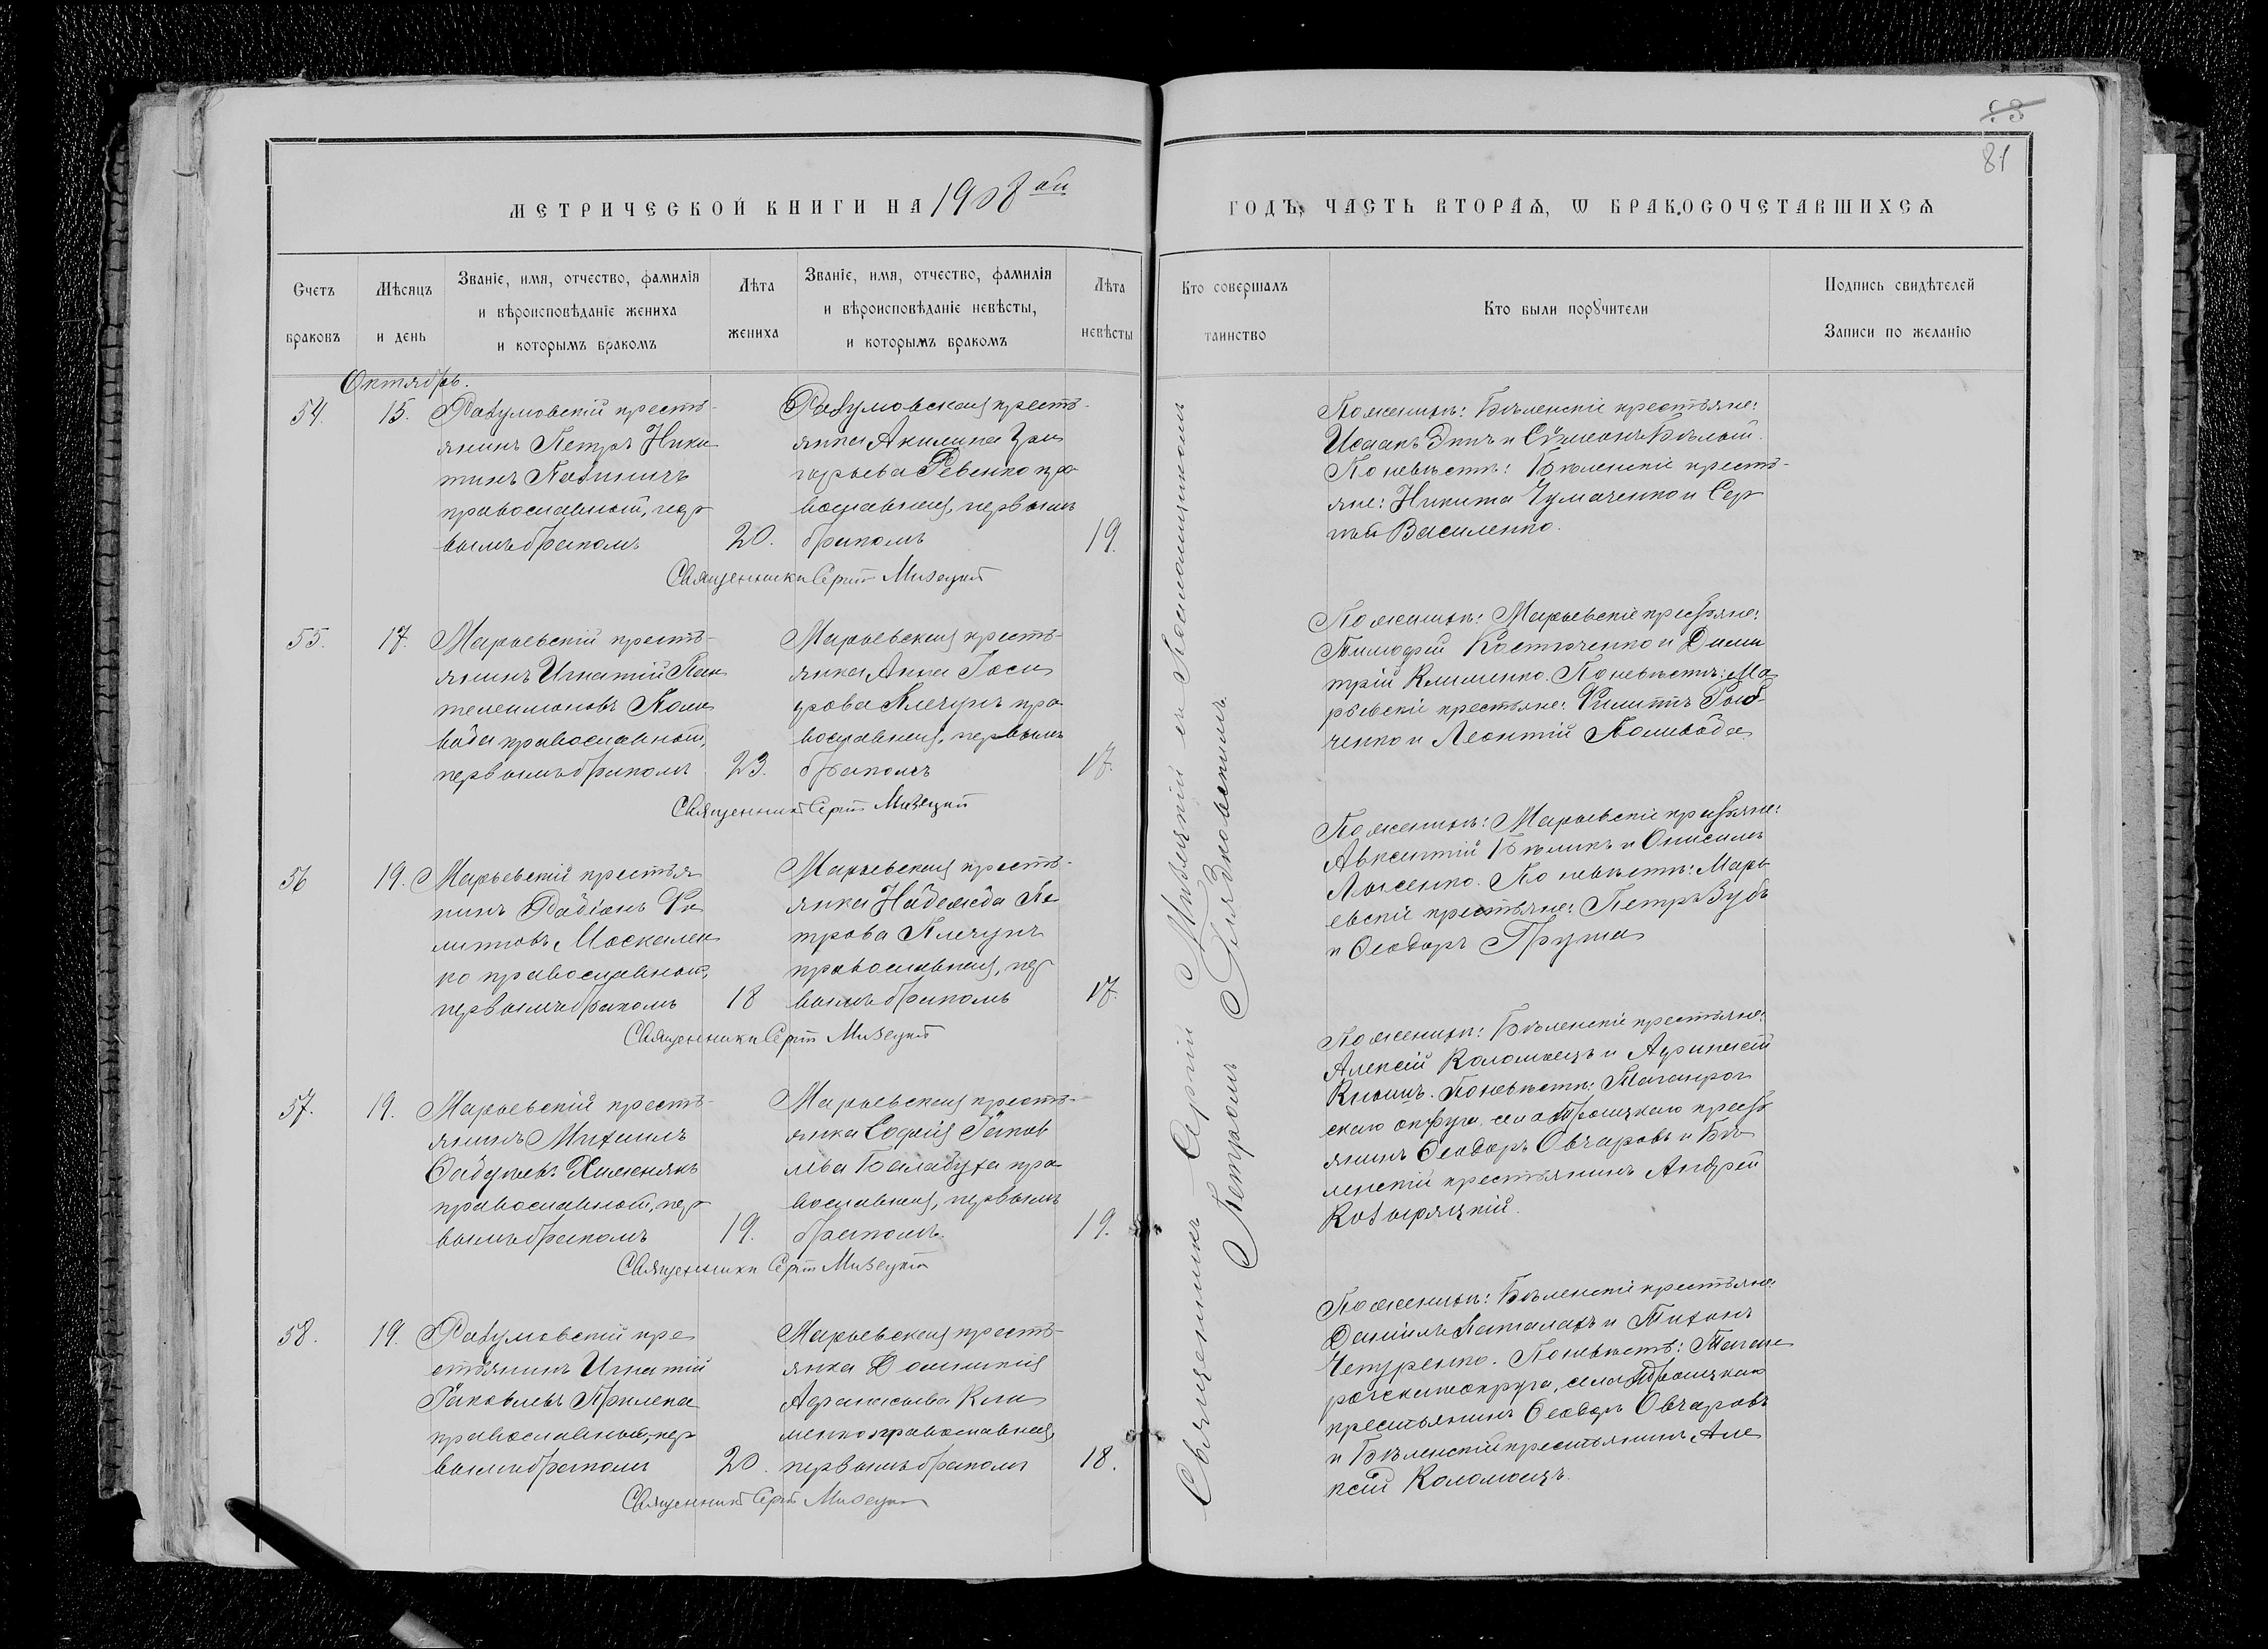 53
81
МЕТРИЧЕСКОЙ КНИГИ НА 1908 ой
ГОДЪ, ЧАСТЬ ВТОРАѦ, Ѡ БРАКОСОЧЕТАВШИХСѦ
Счетъ
браковъ
Мѣсяцъ
и день
Званіе, имя, отчество, фамилія
и вѣроисповѣданіе жениха
и которымъ бракомъ
Лѣта
жениха
Званіе, имя, отчество, фамилія
и вѣроисповѣданіе невѣсты,
и которымъ бракомъ
Лѣта
невѣсты
Кто совершалъ
таинство
Кто были порꙋчители
Подпись свидѣтелей
Записи по желанію
Октябрь.
54.
15.
Разумовскій кресть-
янинъ Петръ Ники
тинъ
православный, пер
вымъ бракомъ
20.
Разумовская кресть-
янка Акилина Гри
горьева Ревенко пра
вославная, первымъ
бракомъ
19.
Священникъ Сергій Мизецкій
По женихѣ: Бѣленскіе крестьяне:
Исаакъ и Сѵмеонъ Бѣлый.
По невѣстѣ: Бѣленскіе кресть-
яне: Никита Чумаченко и Сер
гѣй Василенко.
55.
17.
Марьевскій кресть-
янинъ Игнатій Пан
телеимоновъ Поли
вода православный,
первымъ бракомъ
23.
Марьевская кресть-
янка Анна Іоси
фова Плечунъ пра
вославная, первымъ
бракомъ
17.
Священникъ Сергій Мизецкій
По женихѣ: Марьевскіе крестьяне:
Тимофей Костюченко и Дими
трій Клименко. По невѣстѣ: Ма
рьевскіе крестьяне: Филиппъ
ченко и Леонтій Поливода
56
19.
Марьевскій крестья
нинъ Родіонъ Фи
липповъ Москален
ко православный,
первымъ бракомъ
18
Марьевская кресть-
янка Надежда Пе
трова Плечунъ
православная, пер
вымъ бракомъ
17.
Священникъ Сергій Мизецкій
По женихѣ: Марьевскіе крестьяне:
Авксентій Бѣликъ и Онисимъ
Лысенко. По невѣстѣ: Марь
евскіе крестьяне: Петръ Зубъ
и Ѳеодоръ Груша
57.
19.
Марьевскій кресть-
янинъ Михаилъ
Хименякъ
православный, пер
вымъ бракомъ
19.
Марьевская кресть-
янка Софія Іаков
лева Балабуха пра
вославная, первымъ
бракомъ.
19.
Священникъ Сергій Мизецкій
По женихѣ: Бѣленскіе крестьяне:
Алексій Коломоецъ и Афанасій
Книшъ. По невѣстѣ: Таганрог
скаго округа, села Троицкаго кресть
янинъ Ѳеодоръ Овчаровъ и Бѣ
ленскій крестьянинъ Андрей
Козыряцкій.
58.
19.
Разумовскій кре
стьянинъ Игнатій
Іаковлевъ Прилепа
православный, пер
вымъ бракомъ
20.
Марьевская кресть-
янка Домникія
Афанасьева Кли
менко православная,
первымъ бракомъ
18.
Священникъ Сергій Мизецкій
По женихѣ: Бѣленскіе крестьяне:
Даніилъ Паталахъ и Тихонъ
Чепуренко. По невѣстѣ: Таган
рогскаго округа, села Троицкаго
крестьянинъ Ѳеодоръ Овчаровъ
и Бѣленскій крестьянинъ Але
ксій Коломоецъ.
Священникъ Сергій Мизецкій съ Псаломщикомъ
Петромъ